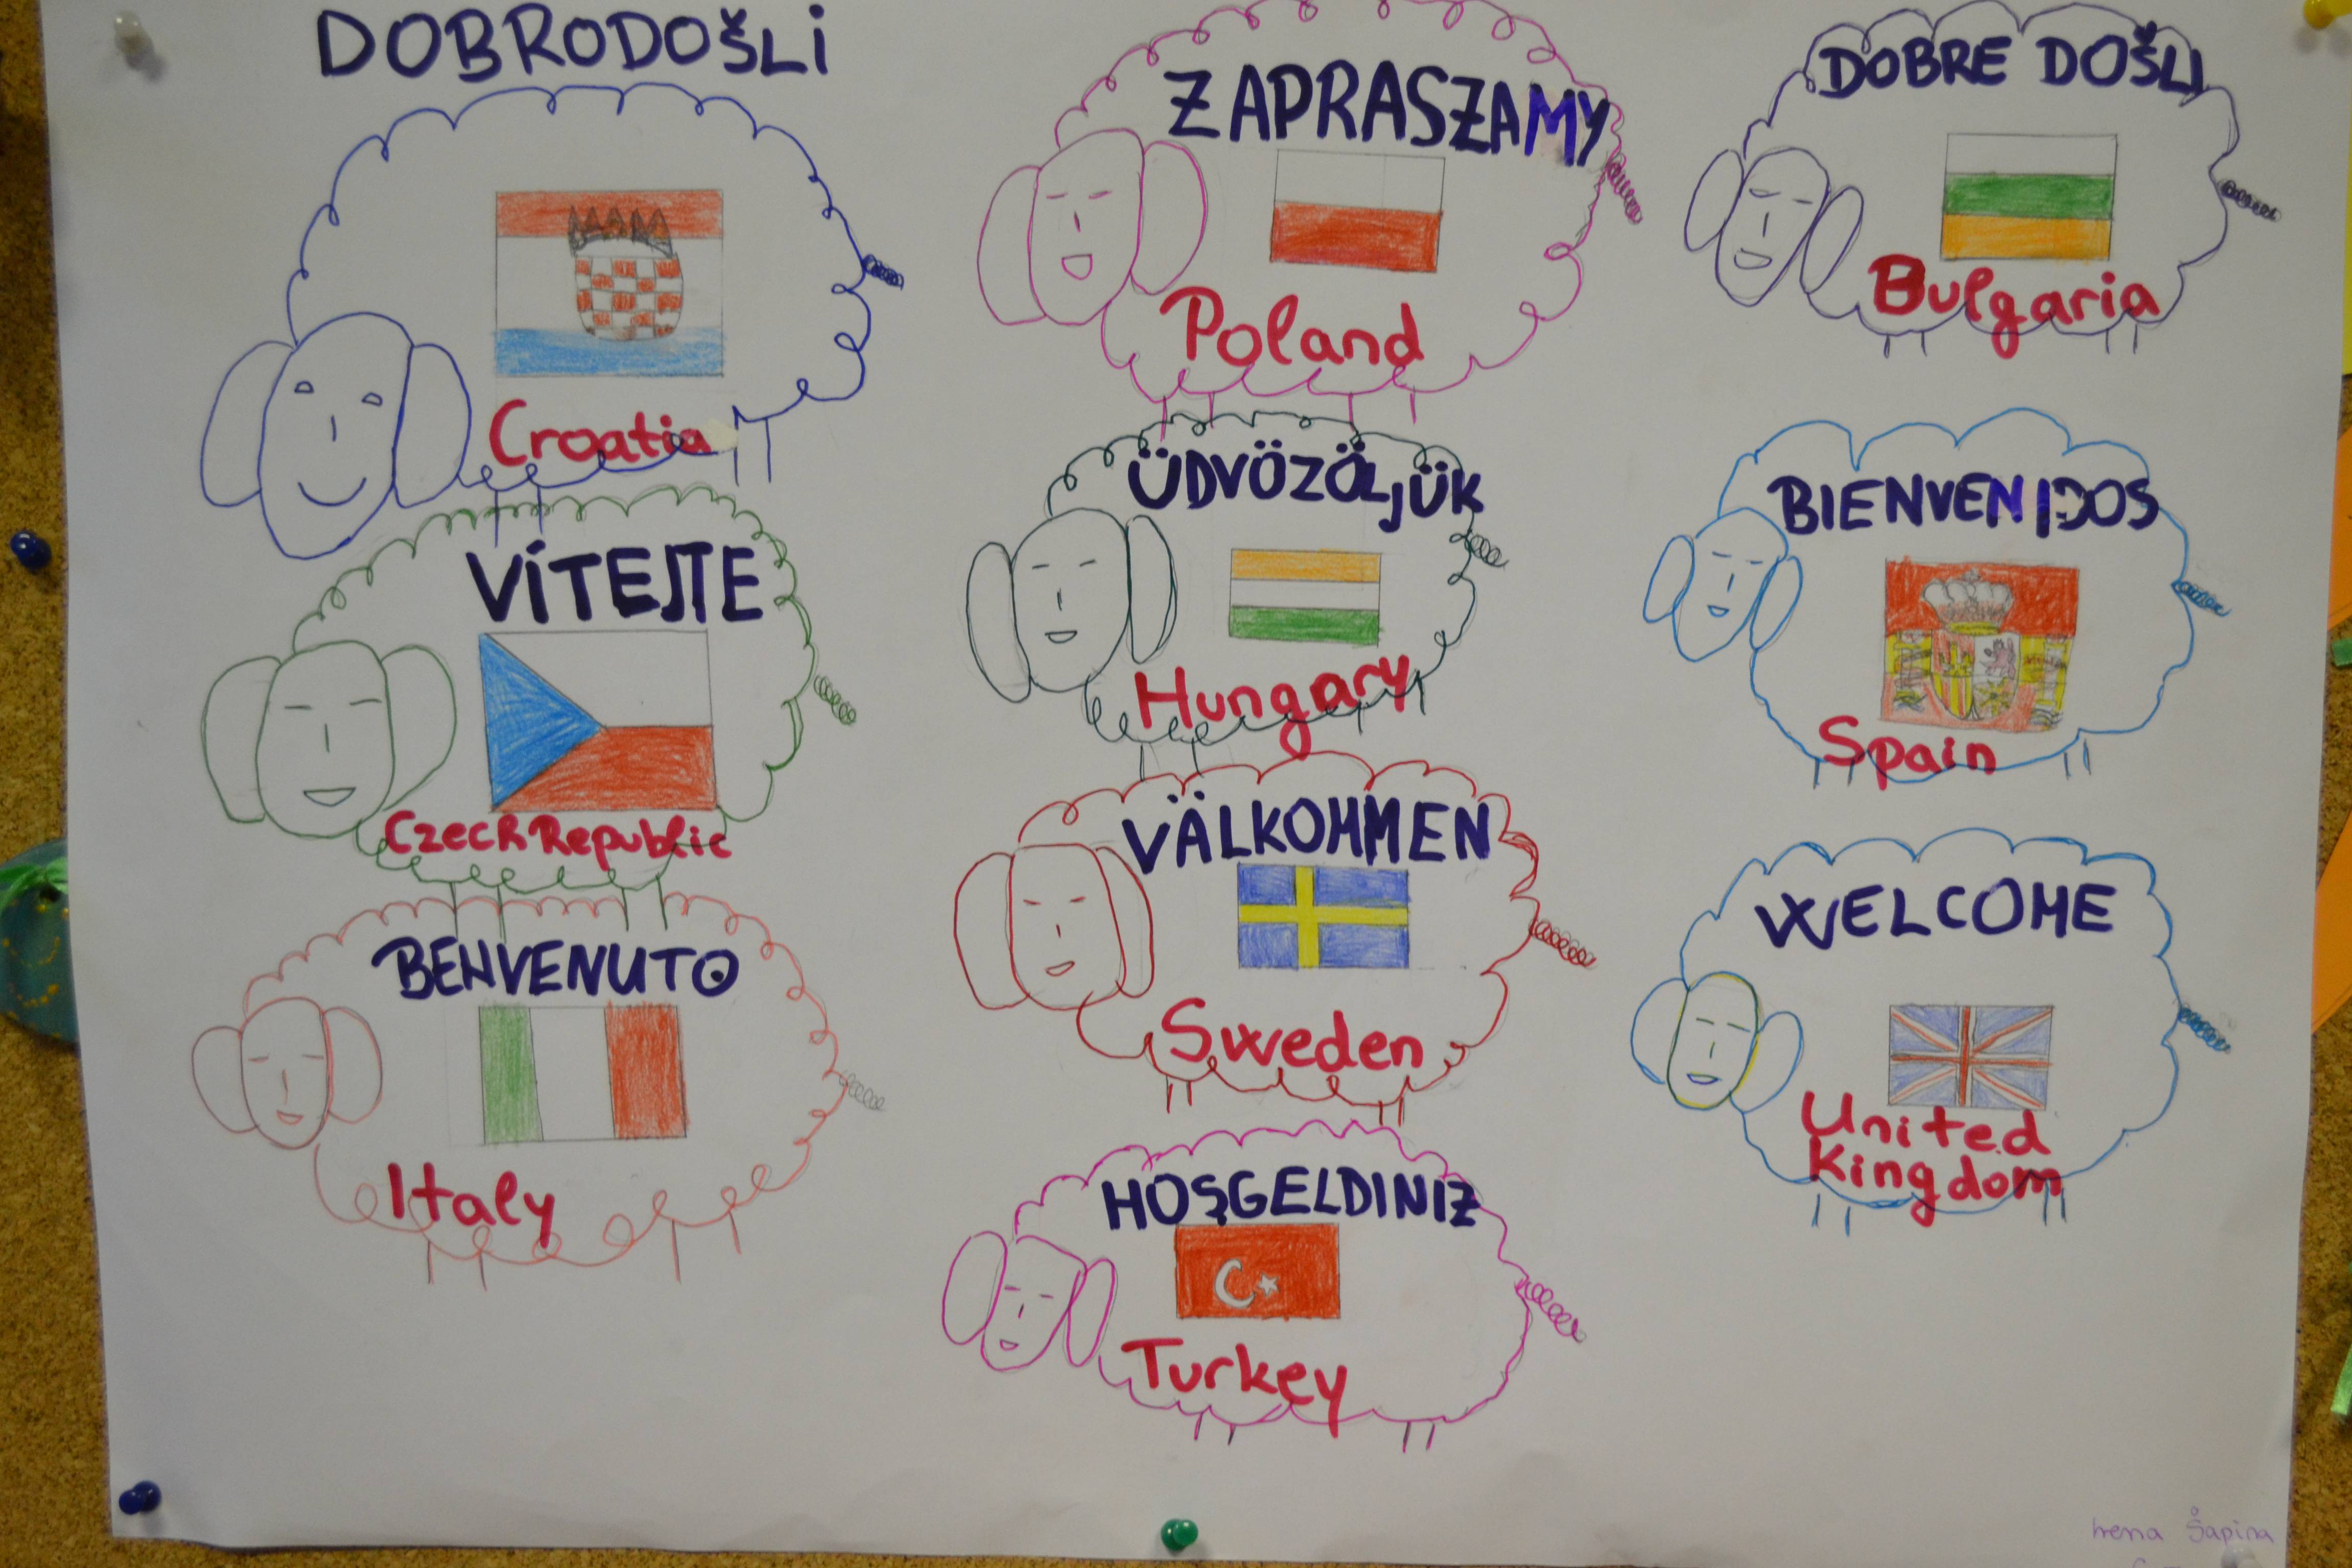 DOBRODOŠLI
Croatia
VÍTEJTE
Czech Republic
BENVENUTO
Italy
ZAPRASZAMY
Poland
ÜDVÖZÖLJÜK
Hungary
VÄLKOMMEN
Sweden
HOŞGELDINIZ
Turkey
DOBRE DOŠLI
Bulgaria
BIENVENIDOS
Spain
WELCOME
United
Kingdom
Irena Šapina